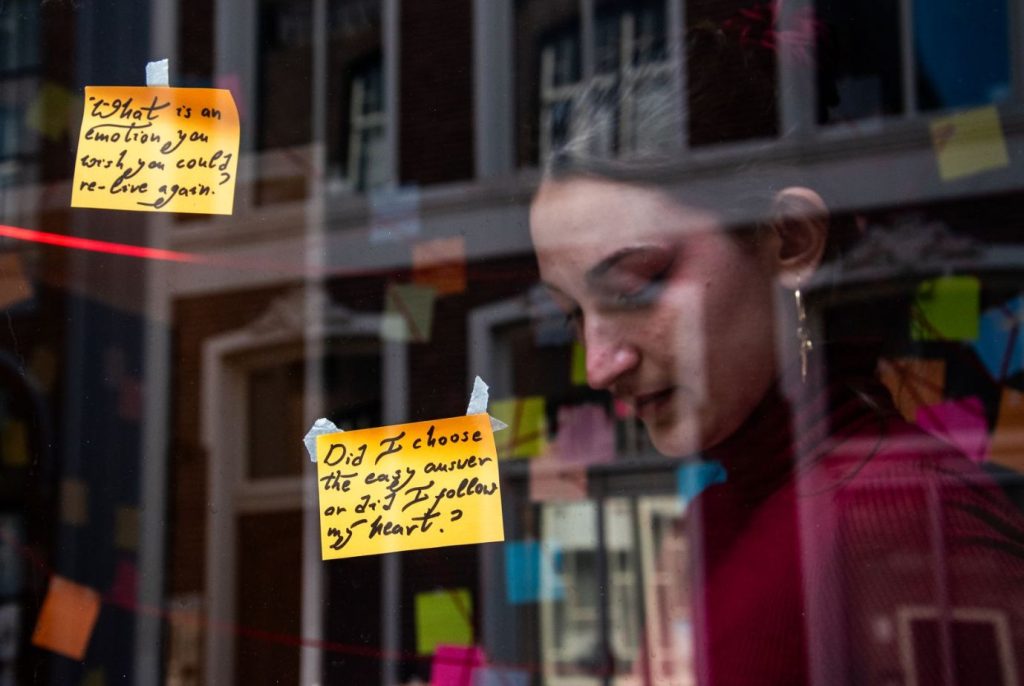 "What is an
emotion you
wish you could
re-live again."?
Did I choose
the easy answer
or did I follow
my heart.?